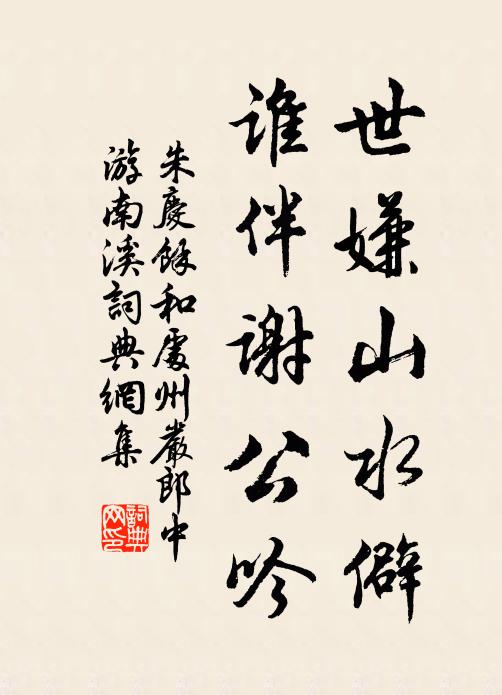 世嫌山水僻
谁伴谢公吟
朱慶餘和處州嚴郎中
游南溪詞典網集
詞典网印